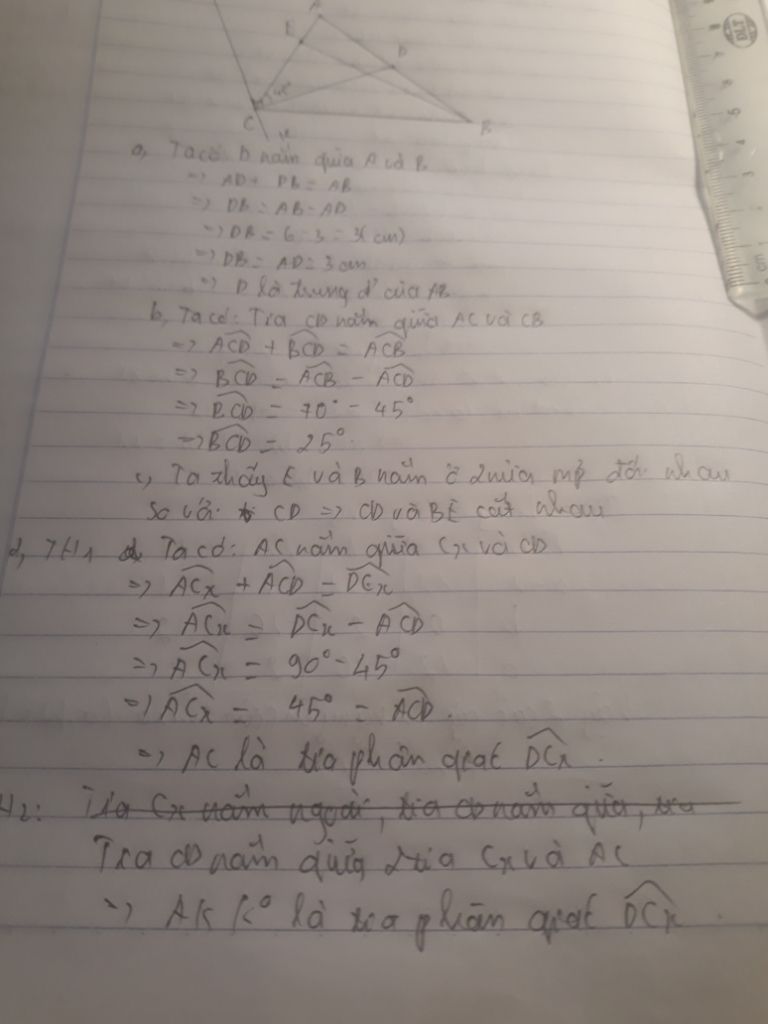 A
E
D
45°
C
B
x
a, Ta có: D nằm giữa A và B
=> AD + DB = AB
=> DB = AB - AD
=> DB = 6 - 3 = 3(cm)
=> DB = AD = 3 cm
=> D là trung đ' của AB
b, Ta có: Tia CD nằm giữa AC và CB
=> ACD + BCD = ACB
=> BCD = ACB - ACD
=> BCD = 70° - 45°
=> BCD = 25°.
c, Ta thấy E và B nằm ở 2 nửa mp đối nhau
so với CD => CD và BE cắt nhau
d, TH1 Ta có: AC nằm giữa Cx và CD
=> ACx + ACD = DCx
=> ACx = DCx - ACD
=> ACx = 90° - 45°
=> ACx = 45° = ACD.
=> AC là tia phân giác DCx.
H2: Tia Cx nằm ngoài, tia CD nằm giữa, tia
Tia CD nằm giữa 2 tia Cx và AC
=> AK K° là tia phân giác DCx.